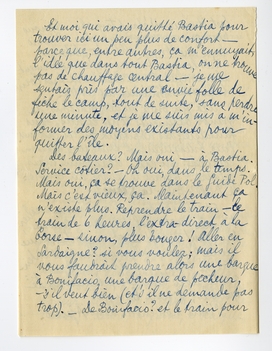 Et moi qui avais quitté Bastia pour
trouver ici un peu plus de confort –
parce que, entre autres, ça m'ennuyait,
l'idée que dans tout Bastia, on ne trouve
pas de chauffage central – je me
sentais pris par une envie folle de
fiche le camp, tout de suite, sans perdre
une minute, et je me suis mis à m'in-
former des moyens existants pour
quitter l'île.
Des bateaux? Mais oui – à Bastia.
Service côtier? – Oh oui, dans le temps.
Mais oui, ça se trouve dans le Guide Pol.
Mais c'est vieux, ça. Maintenant ça
n'existe plus. Reprendre le train – le
train de 6 heures, l'extra direct à la
– sinon, plus bouger! Aller en
Sardaigne? si vous voulez; mais il
vous faudrait prendre alors une barque
à Bonifacio, une barque de pêcheur,
s'il veut bien (et s'il ne demande pas
trop). – De Bonifacio? et le train pour